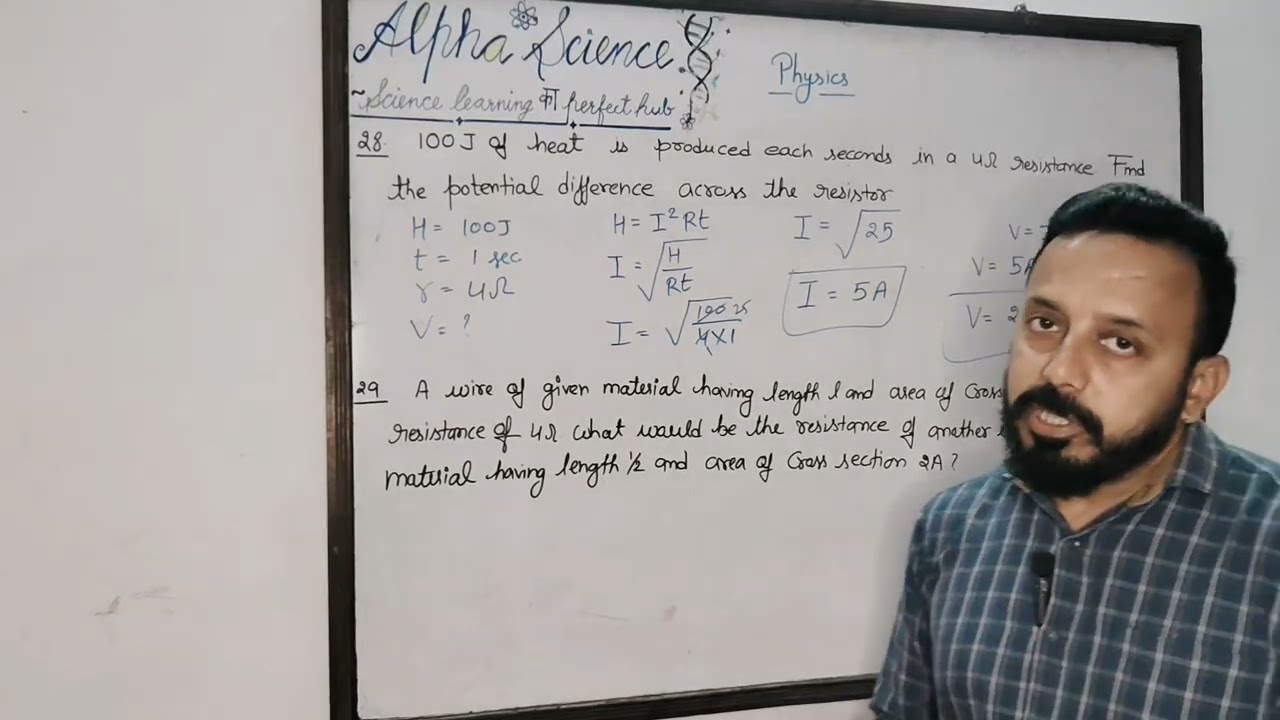 Alpha Science
~Science learning का perfect hub
Physics
28. 100J of heat is produced each seconds in a 4Ω resistance. Find
the potential difference across the resistor
H = 100J
t = 1 sec
r = 4Ω
V = ?
H = I²Rt
I = √H/Rt
I = √100 25/4×1
I = √25
I = 5A
V =
V = 5A
V = 2
29 A wire of given material having length l and area of Cross
resistance of 4Ω what would be the resistance of another
material having length l/2 and area of Cross section 2A?